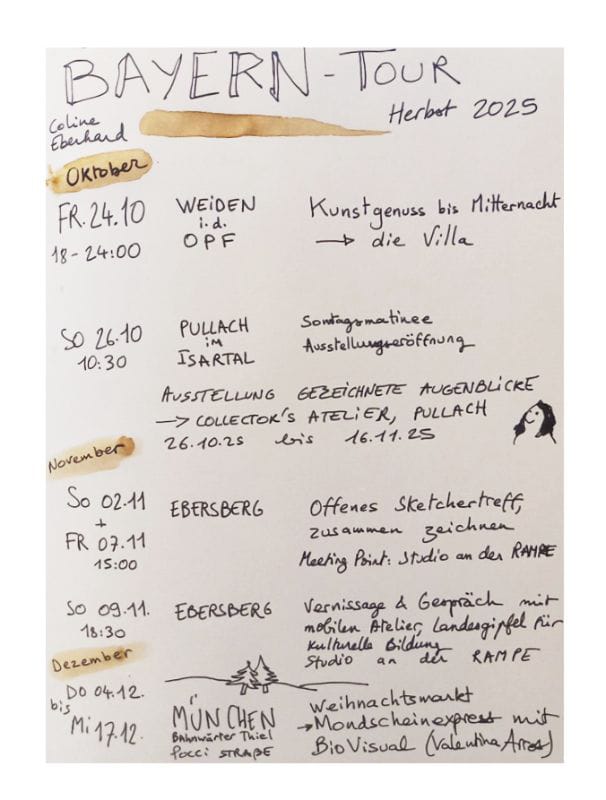 BAYERN-TOUR
Herbst 2025
Coline
Eberhard
Oktober
FR. 24.10
18-24:00
WEiDEN
i.d.
OPF
Kunstgenuss bis Mitternacht
→ die Villa
SO 26.10
10:30
PULLACH
iM
ISARTAL
Sontagsmatinee
Ausstellungseröffnung
AUSSTELLUNG GEZEICHNETE AUGENBLICKE
→ COLLECTOR'S ATELIER, PULLACH
26.10.25 bis 16.11.25
November
So 02.11
+
FR 07.11
15:00
EBERSBERG
Offenes Sketchertreff,
zusammen zeichnen
Meeting Point: Studio an der RAMPE
So 09.11.
18:30
EBERSBERG
Vernissage & Gespräch mit
mobilen Atelier, Landesgipfel für
Kulturelle Bildung
Studio an der RAMPE
Dezember
Do 04.12.
bis
Mi 17.12.
MÜNCHEN
BAHNWÄRTER Thiel
Pocci STRAßE
Weihnachtsmarkt
→ Mondscheinexpress mit
BioVisual (Valentina